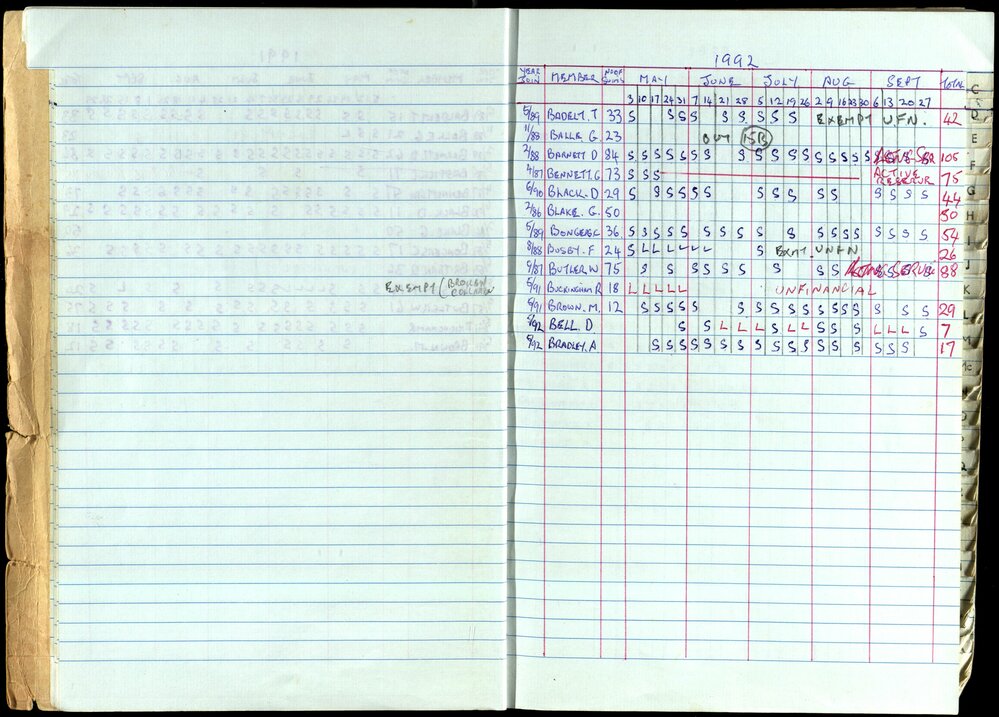 1992
YEAR JOIN MEMBER NO OF SWIMS MAY JUNE JULY AUG SEPT TOTAL
3 10 17 24 31 7 14 21 28 5 12 19 26 2 9 16 23 30 6 13 20 27
5/89 BADELT. T 33 S S S S S S S S S EXEMPT U.F.N. 42
11/88 BALLE G. 23 OUT 15B
2/88 BARNETT D 84 S S S S S S S S S S S S S S S S S 105
4/87 BENNETT. G 73 S S S ACTIVE RESERVE 75
6/90 BLACK. D 29 S S S S S S S S S S S S S S S 44
2/86 BLAKE. G. 50 50
5/89 BONGERS. C 36 S S S S S S S S S S S S S S S S S S 54
8/88 BOSEY. F 24 S L L S EXMT. U.N.F.N 26
BUTLER. W 75 S S S S S S S S S 88
EXEMPT (BROKEN COLLARBN
5/91 BUCKINGHAM R 18 L L L L L UNFINANCIAL
BROWN. M. 12 S S S S S S S S S S S S S S S S S 29
BELL. D S S L L L S L L S S S L L L S 7
BRADLEY. A S S S S S S S S S S S S S S S S S 17
C
D
E
F
G
H
I
J
K
L
M
Mc